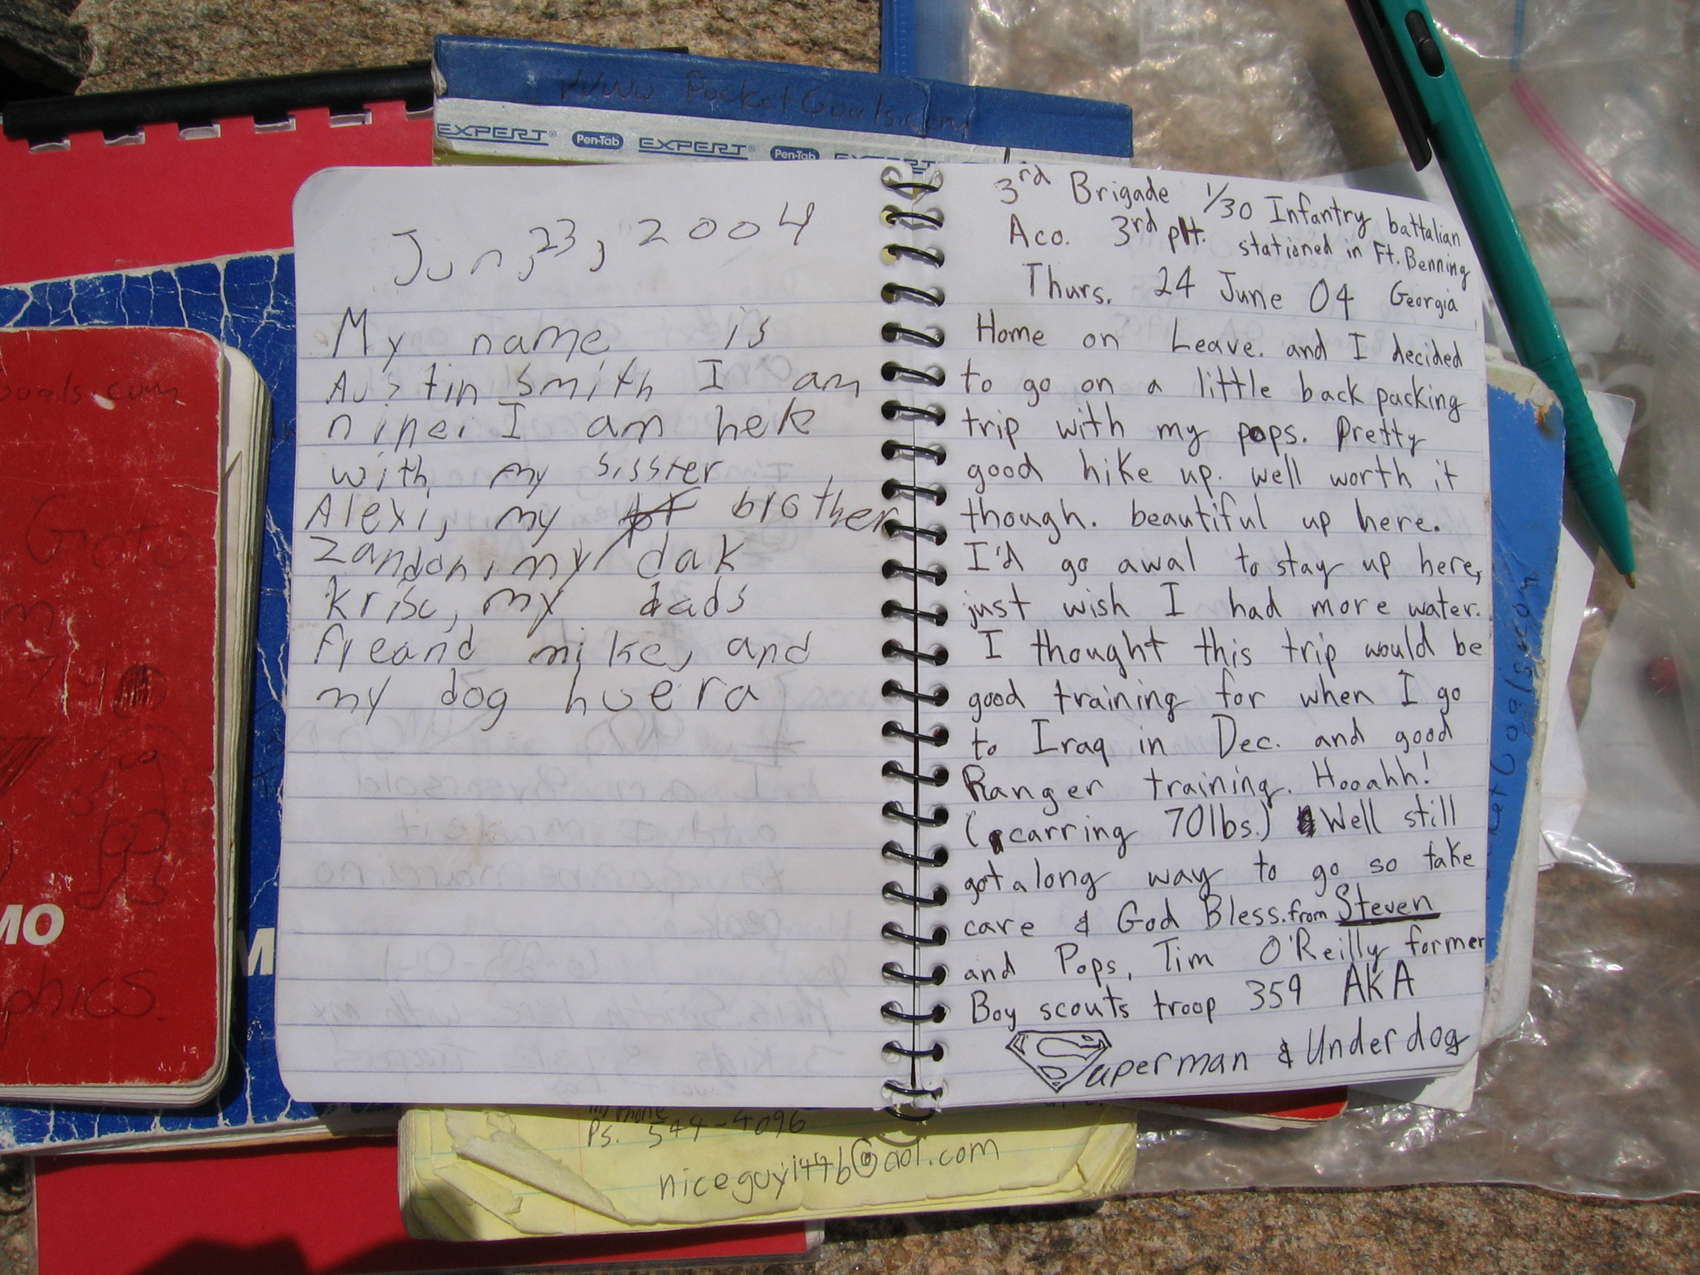 www PocketGoals.com
EXPERT Pen-Tab EXPERT Pen-Tab EXPERT
Jun, 23, 2004
My name is
Austin Smith I am
nine. I am here
with my sisster
Alexi, my brother
zandon, my dak
krisc, my dads
freand mike, and
my dog huera
3rd Brigade 1/30 Infantry battalian
Aco. 3rd plt. stationed in Ft. Benning
Thurs. 24 June 04 Georgia
Home on Leave. and I decided
to go on a little back packing
trip with my pops. Pretty
good hike up. well worth it
though. beautiful up here.
I'd go awal to stay up here,
just wish I had more water.
I thought this trip would be
good training for when I go
to Iraq in Dec. and good
Ranger training. Hooahh!
(carring 70lbs.) Well still
got a long way to go so take
care & God Bless. from Steven
and Pops, Tim O'Reilly former
Boy scouts troop 359 AKA
Superman & Underdog
oals.com
Goto
MO
phics.
M
my Phone
Ps. 544-4096
niceguy1476@aol.com